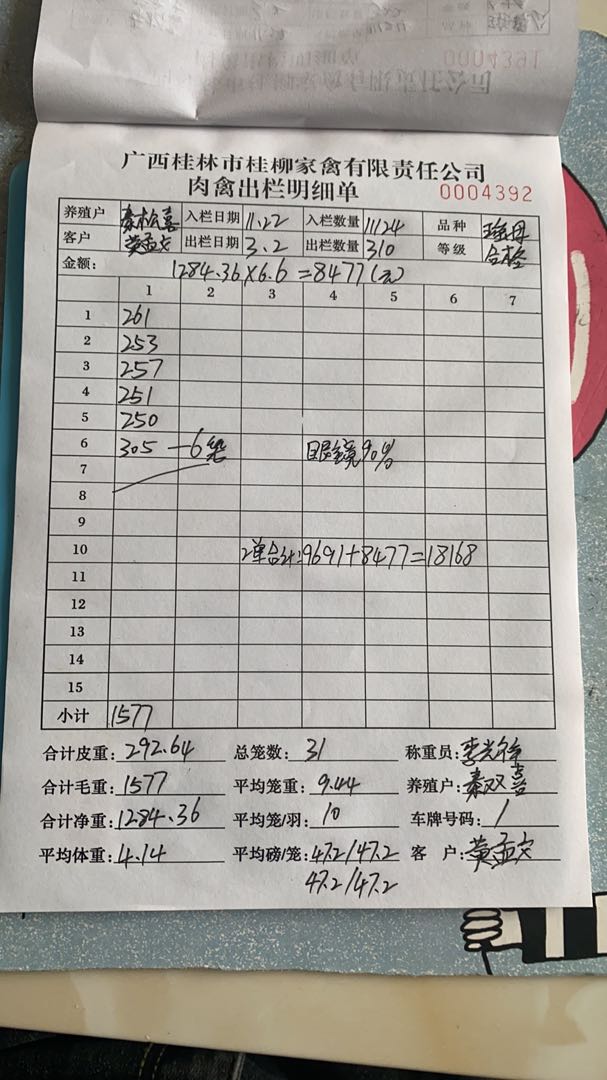 0004391
广西桂林市桂柳家禽有限责任公司
肉禽出栏明细单 0004392
养殖户 入栏日期 11.22 入栏数量 11124 品种
客户 黄孟文 出栏日期 3.2 出栏数量 310 等级 合格
金额: 1284.36×6.6=8477(元)
1 2 3 4 5 6 7
1 261
2 253
3 257
4 251
5 250
6 305 —6笼 眼镜90%
7
8
9
10 2单合计:9691+8477=18168
11
12
13
14
15
小计 1577
合计皮重: 292.64 总笼数: 31 称重员:
合计毛重: 1577 平均笼重: 9.44 养殖户: 秦双喜
合计净重: 1284.36 平均笼/羽: 10 车牌号码: /
平均体重: 4.14 平均磅/笼: 47.2/47.2 客 户: 黄孟文
47.2/47.2